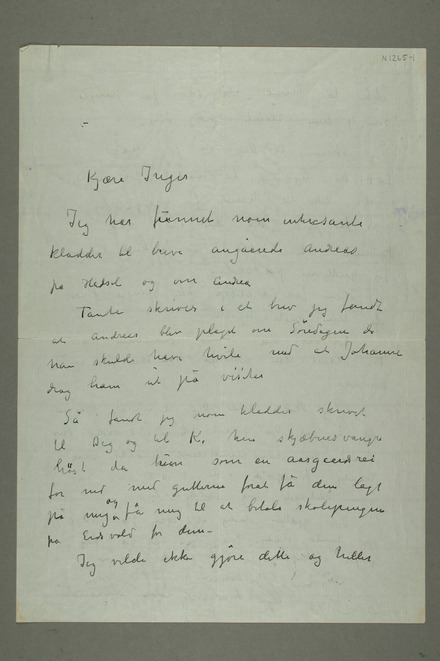 N1265-1
Kjære Inger
Jeg har funnet noen interesante
kladder til breve angående Andreas
på Hadsel og om Andrea
Tante skriver i et brev jeg fandt
at Andreas blev plaget om Söndagene da
han skulde have hvile med at Johanne
drog ham ut på visiter
Så fandt jeg noen kladder skrevet
til Dig og til K. hin skjæbnesvangre
höst da hun som en aasgaardsrei
for ned med guttene foret få dem lagt
på mig og få mig til at betale skolepengene
på Eidsvold for dem -
Jeg vilde ikke gjöre dette, og heller